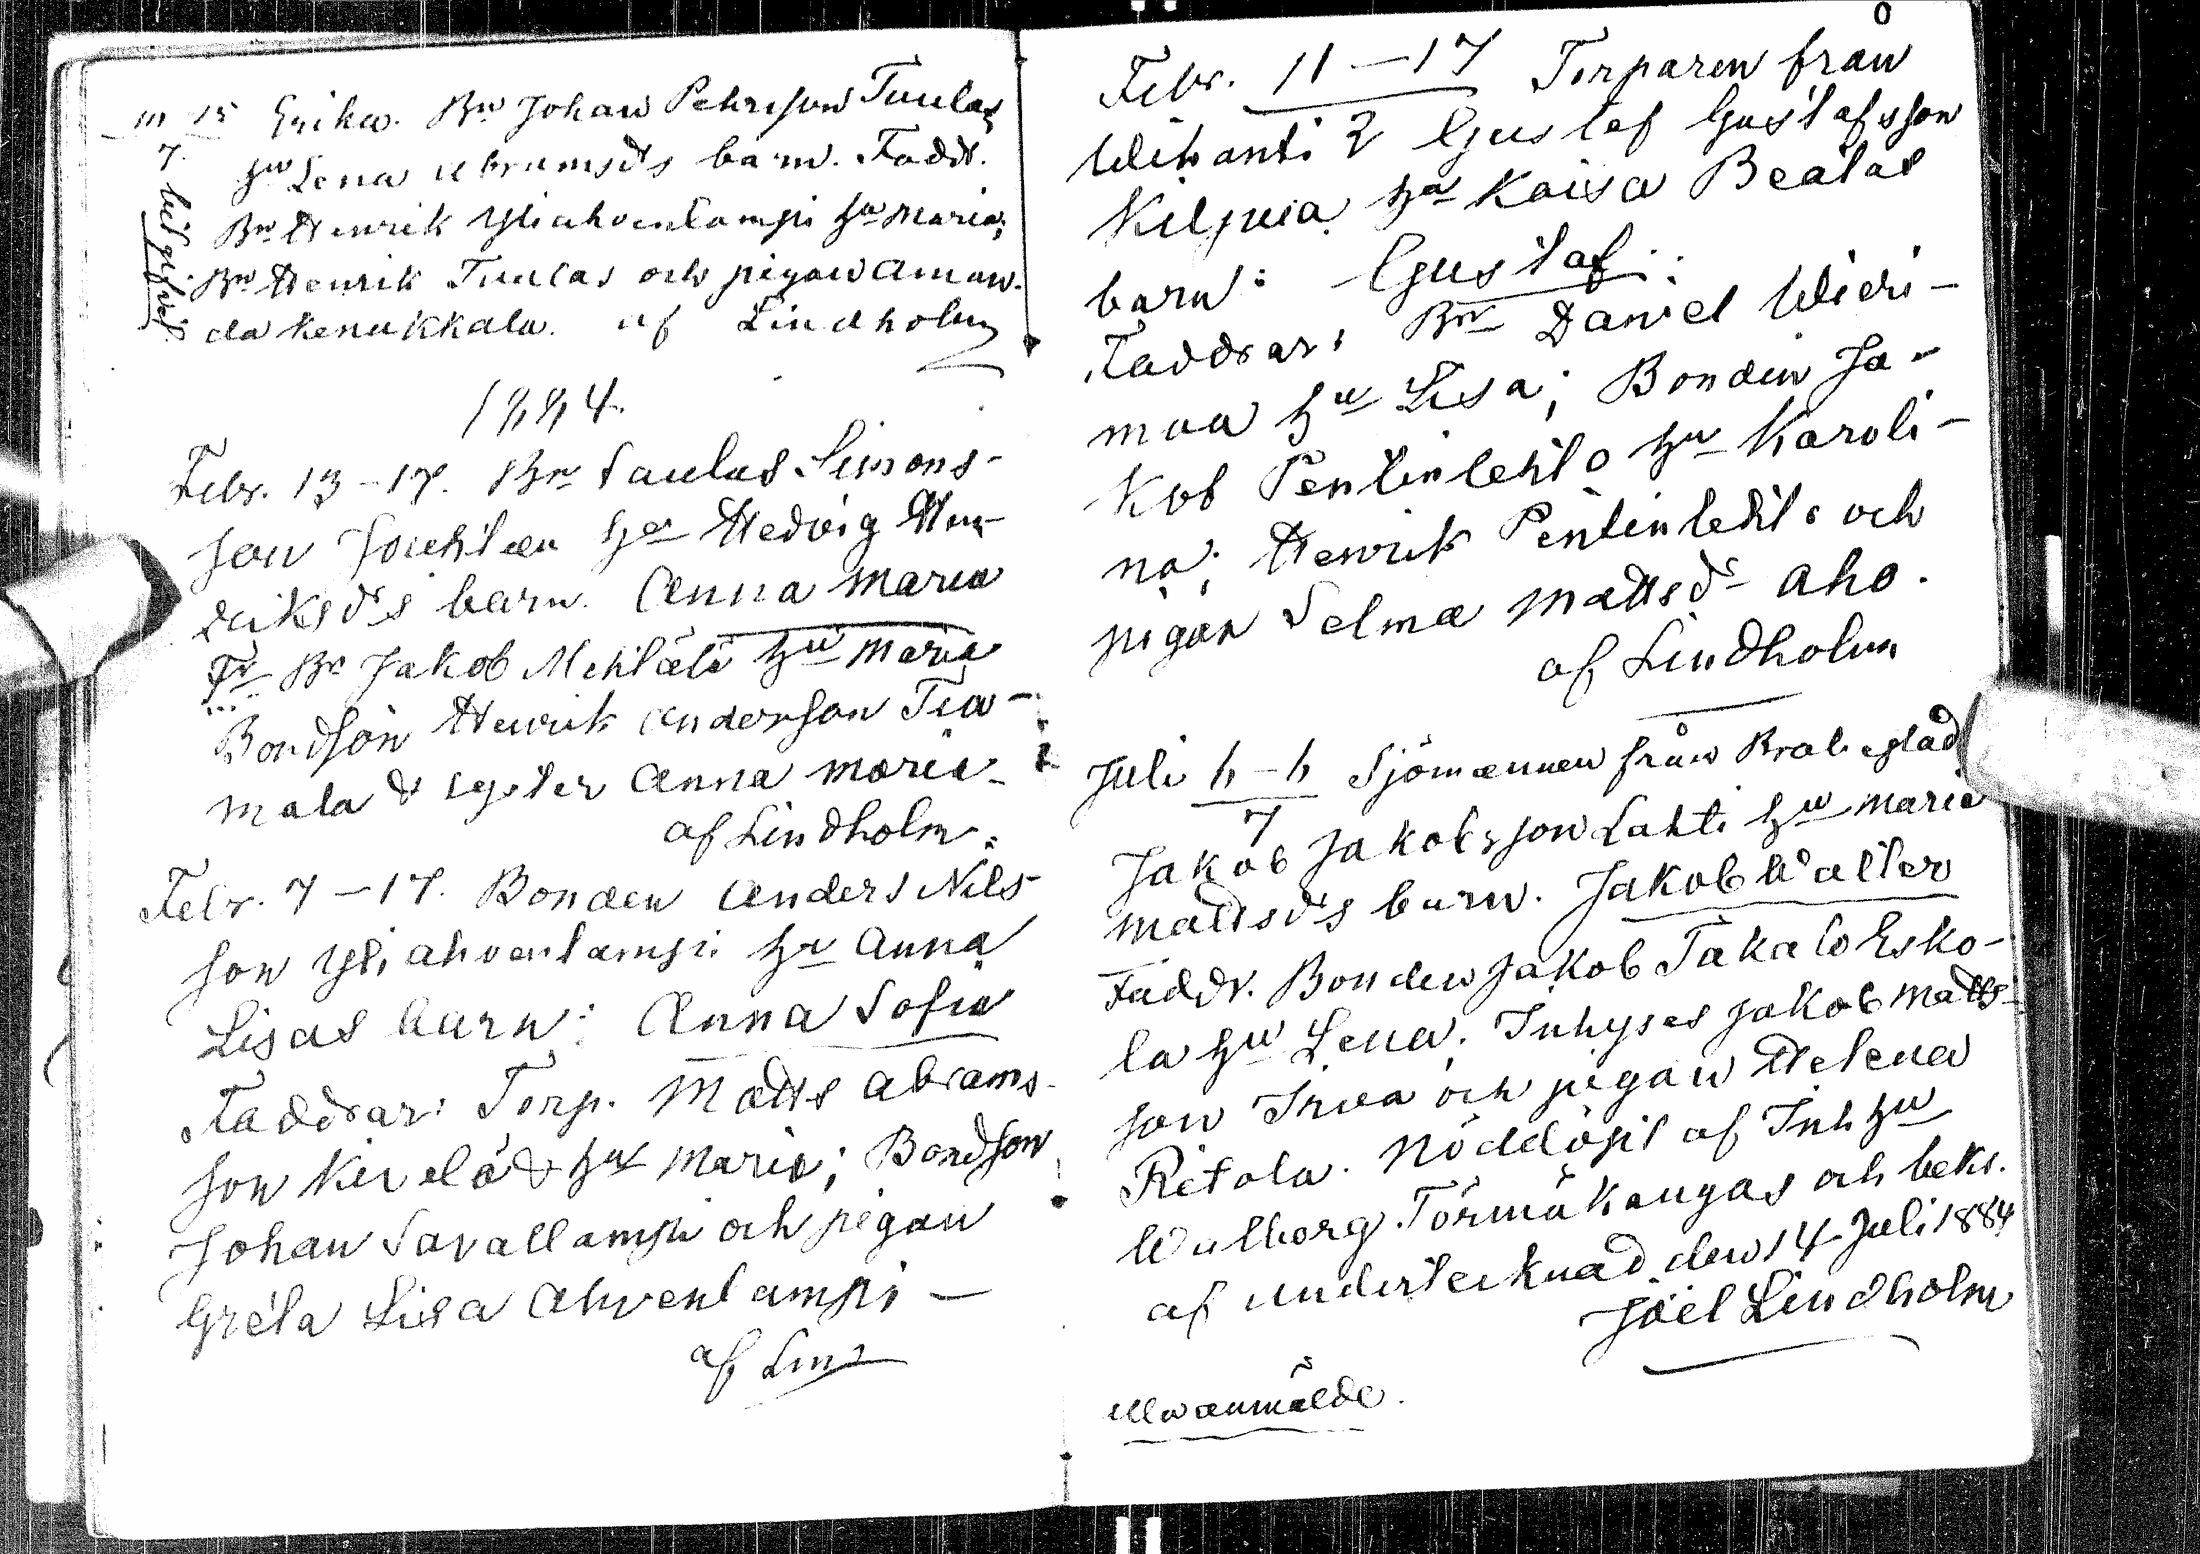 10 15 Erika. Bn Johan Pehrsson Tuulas
7. hu Lena Abramsds barn. Faddr.
Bn Henrik Yliahvenlampi hu Maria;
Bn Henrik Tuulas och pigan Aman-
da Kenakkala. af Lindholm
1884.
Febr. 13-17. Bn Paulus Simons-
son hu Hedvig Hen-
driksds barn. Anna Maria
Fr Bn Jakob hu Maria
Bondson Henrik Andersson Tia-
mala & syster Anna Maria-
af Lindholm.
Febr. 7-17. Bonden Anders Nils-
son Yliahvenlampi hu Anna
Lisas barn: Anna Sofia
Faddrar: Torp. Matts Abrams-
son Kivelä & hu Maria; Bondson
Johan Savallampi och pigan
Greta Lisa Ahvenlampi -
af Lin
Febr. 11-17 Torparen från
Wihanti 2 Gustaf Gustafsson
Kilpua hu Kaisa Beatas
barn: Gustaf:
Faddrar: Bn Daniel Widri-
maa hu Lisa; Bonden Ja-
kob Pentinlehto hu Karoli-
na; Henrik Pentinlehto och
pigan Selma Mattsd. Aho.
af Lindholm
Juli 6-6 Sjömannen från Brahestad
7
Jakob Jakobsson Lahti hu Maria
Mattsds barn. Jakob Walter
Faddr. Bonden Jakob Takalo Esko-
la hu Lena; Inhyses Jakob Matts-
son Irva och pigan Helena
Ritola. Nöddöpt af Inh hu
Walborg Törmäkangas och bekr.
af undertecknad den 14 Juli 1884
Joël Lindholm
Alla anmälde.